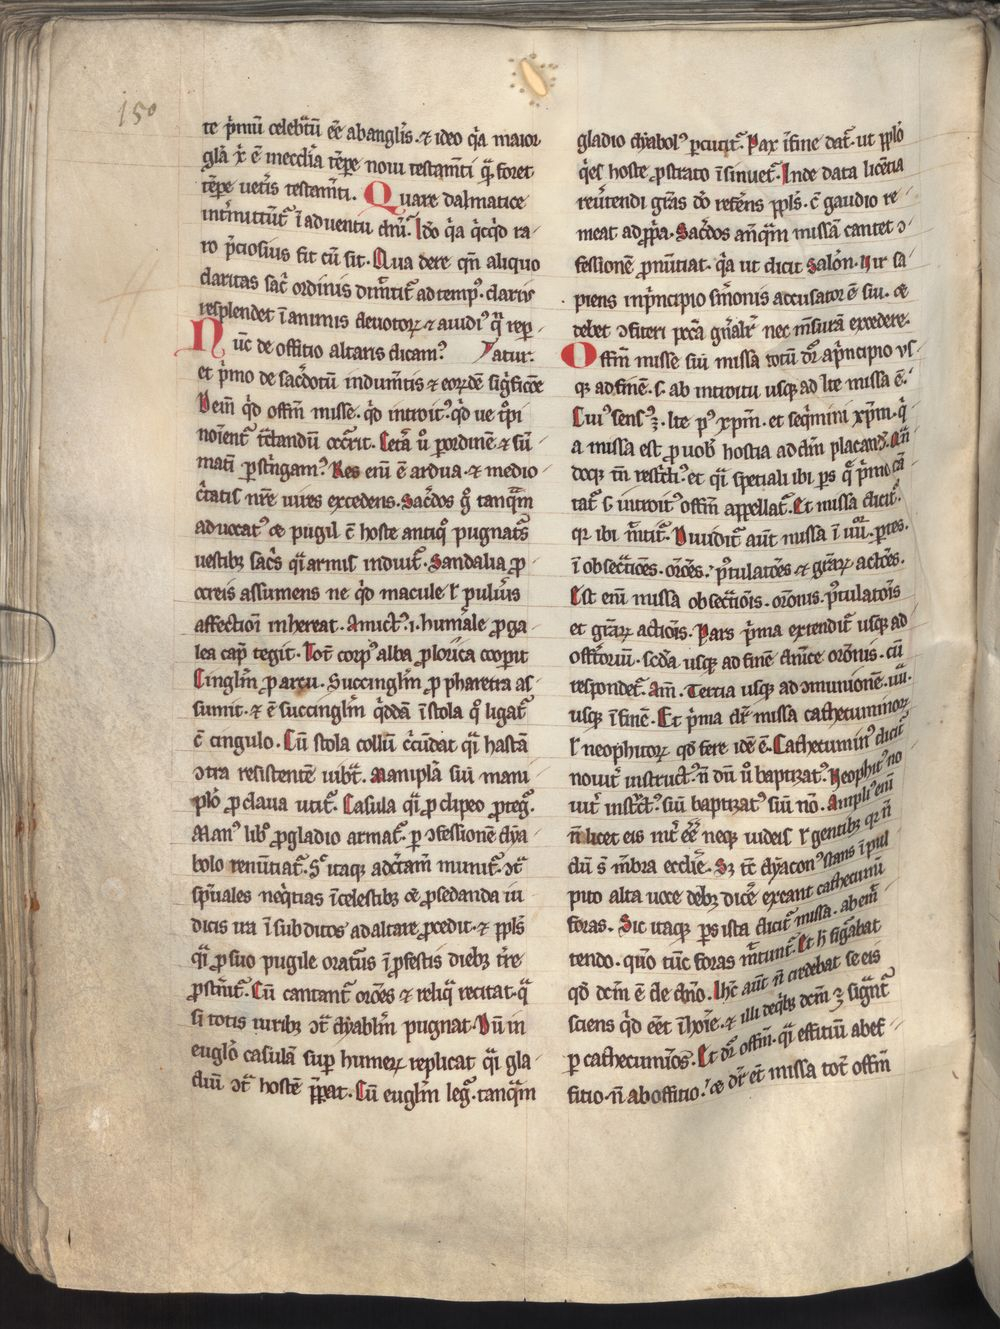 150
te p̄mū celebᷓtū eē ab anglis̄. ⁊ ideo qͥa maior
glā xͥ ē in eccl̄ia tēpe noui testam̄ti qᷓ foret
tēpe uetis̄ testam̄ti. Quare dalmatice
int̄mittūtᷓ ī aduentu dn̄i. Iđo qͥa qͥcqͥd ra-
ro p̄ciosius fit cū sit. Qua dere qn̄ aliquo
claritas sac̄ ordinis dim̄titᷓ ad tempꝰ. clariꝰ
resplendet ī animis deuotoꝝ ⁊ auidiꝰ qᷓ reꝑ-
Nūc de offitio altaris dicam? ỿatur.
et pͥmo de sac̄dotū indum̄tis ⁊ eoꝝdē sig̅ficōe
Deīn qͥd offm̄ misse. qͥd introitꝰ. qͥd ue tͥpi
noīent᷑ tͣctandū occr̄rit. Cetᷓa ů ꝑ ordinē ⁊ sū-
matī ꝑstͥngam? Res enī ē ardua. ⁊ medio-
cͥtatis nr̄e uires excedens. Sac̄dos gͦ tanqᷓm
aduocatꝰ ⁊ pugil cū hoste antiqͦ pugnatꝰ
uestibꝫ sacͥs qͣi armis induitᷓ. Sandalia ꝓ
ocreis assumens ne qͥd macule ł puluis̄
affectioni inhereat. Amictꝰ .i. humāle ꝓ ga-
lea cap̄ tegit. Tot̄ corpꝰ alba ꝓ lorica cooꝑit
Cinglm̄ ꝓ arcu. Succinglm̄ ꝓ pharetra as-
sumit. ⁊ ē succinglm̄ qͦddā ī stola qͦ ligatᷓ
cū cingulo. Cū stola collū cͥcūdat qͣi hastā
ɔtra resistentē iubᷓt. Manipla suū mani-
plō ꝓ claua utitᷓ. Casula qͣi ꝓ clipeo ꝓtegᷓ.
Manꝰ libͦ ꝓ gladio armatᷓ. ꝑ ɔfessionē dẏa-
bolo renūtiatᷓ. Sͥ itaqꝫ ad ctam̄ munitᷓ. ɔtͣ
spūales neqͥtias ī celestibꝫ ꝓ sedanda iu-
dicis ira ī subditos ad altare ꝓcedit. ⁊ ppl̄s
qͣi ꝓ suo pugile oraturꝰ ī ꝓfestis diebꝫ tr̄e
ꝓstn̄itᷓ. Cū cantantᷓ orōes ⁊ reliqᷓ recitat. qᷓ
si totis uiribꝫ ɔtͣ dẏablm̄ pugnat. Dū in
euglō casulā suꝑ humeꝝ replicat qͣi gla-
diū ɔtͣ hostē p̄ꝑat. Cū euglm̄ legᷓ. tanqᷓm
gladio dẏabolꝰ ꝑcutitᷓ. Pax ī fine datᷓ. ut pplō
qͥes hoste ꝓstrato īsinuetᷓ. Inde data licētia
reūtendi grās đo refēns ppl̄s. cū gaudio re-
meat ad ꝓpͥa. Sac̄dos anqᷓm missā cantet ɔ-
fessionē ꝓnūtiat. qͥa ut dicit Salōn. Vir sa-
piens in pͥncipio sm̄onis accusator ē sui. ⁊
debet ɔfiteri pccā gn̄alr̄ nec m̄surā excedere.
Offm̄ misse siū missa totū dꝛ̄ a pͥncipio us-
qꝫ ad finē. s. ab introitu usqꝫ ad Ite missa ē.
Cuiꝰ sensꝰ ꝫ. Ite pꝰ xp̄m. et seqͥmini xp̄m. qͥ-
a missa est ꝓ uobͥ hostia ad dm̄ placandū.
docqꝫ tn̄ restͥctiꝰ. et qͣi spetiali ibi ꝑs qͥ pͥmo cā-
tatᷓ s. introitꝰ offm̄ appellatᷓ. Et missa dicitᷓ.
qꝛ ibi m̄titᷓ. Diuiditᷓ aūt missa ī iiiiᵒꝛ. ꝑtes.
ī obsecᷓtiōes. orōes. p̄tulatōes ⁊ grāꝝ actōes.
Est enī missa obsecᷓtiōis. orōnis. p̄tulatōis
et grāꝝ actiōis. Pars pͥma extenditᷓ usqꝫ ad
offr̄oriū. scđa usqꝫ ad finē dn̄ice orōnis. cū
respondetᷓ. Am̄. Tertia usqꝫ ad ɔmunionē. iiiiᷓ.
usqꝫ ī finē. Et pͥma dr̄ missa cathecuminoꝝ
ł neophitoꝝ qͦd fere idē ē. Cathecuminꝰ dicitᷓ
nouit̄ instructꝰ. n̄ dū ů baptizatꝰ. Neophitꝰ no
uit̄ instͦctꝰ siū baptizatꝰ siū nō. Ampliꝰ enī
n̄ licet eis int̄ eē neqꝫ iudeis ł gentibꝫ qꝛ n̄
dū s̄ m̄bra eccl̄ie. Sꝫ tc̄ dẏaconꝰ stans ī pul
pito alta uoce debꝫ dicē exeant cathecumi
foras. Sic itaqꝫ ꝑs ista dicitᷓ missa. ab em̄
tendo. qm̄o tūc foras m̄tuntᷓ. Et h̄ figᷓabat
qͦd dcm̄ ē de dn̄o. Ihc̄ aūt n̄ credebat se eis
sciens qͥd eēt ī hoīe. ⁊ illi de qͥbꝫ dcm̄ ꝫ sigᷓnt
ꝑ cathecumīos. Et dꝛ̄ offm̄. qͣi effitiū ab ef-
fitio. n̄ ab offitio. ⁊ dr̄ et̄ missa tot̄ offm̄